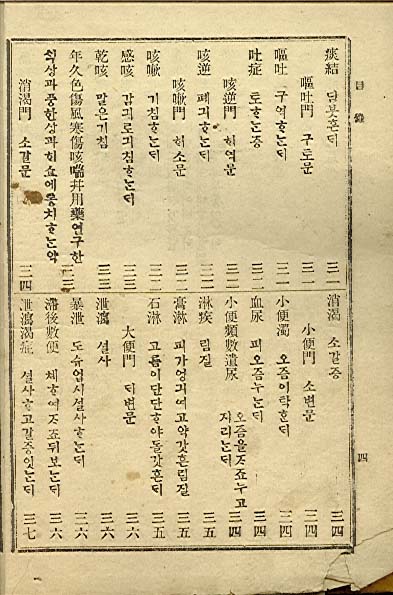 目錄
四
痰結 담못흔ᄃᆡ 三一
嘔吐門 구토문 三一
嘔吐 구역ᄒᆞᄂᆞᆫᄃᆡ 三一
吐症 토ᄒᆞᄂᆞᆫ증 三二
咳逆門 ᄒᆡ역문 三二
咳逆 폐긔ᄒᆞᄂᆞᆫᄃᆡ 三二
咳嗽門 ᄒᆡ소문 三二
咳嗽 기침ᄒᆞᄂᆞᆫᄃᆡ 三二
感咳 감긔로기침ᄒᆞᄂᆞᆫᄃᆡ 三三
乾咳 말은기침 三三
年久色傷風寒傷咳喘幷用藥 연구한
ᄉᆡᆨ상과풍한상과ᄒᆡ쇼에통치ᄒᆞᄂᆞᆫ약
消渴門 소갈문 三四
消渴 소갈증 三四
小便門 소변문 三四
小便濁 오좀이탁ᄒᆞᆫᄃᆡ 三四
血尿 피오좀누ᄂᆞᆫᄃᆡ 三四
小便頻數遺尿 오좀을ᄌᆞ죠누고
지리ᄂᆞᆫᄃᆡ 三四
淋疾 림질 三五
膏淋 피가엉긔여고약갓흔림질 三五
石淋 고름이단단ᄒᆞ야돌갓흔ᄃᆡ 三五
大便門 ᄃᆡ변문 三六
泄瀉 셜사 三六
暴泄 도슈업시셜사ᄒᆞᄂᆞᆫᄃᆡ 三六
滯後數便 쳬ᄒᆞ여ᄌᆞ죠뒤보ᄂᆞᆫᄃᆡ 三六
泄瀉渴症 셜사ᄒᆞ고갈증잇ᄂᆞᆫᄃᆡ 三七